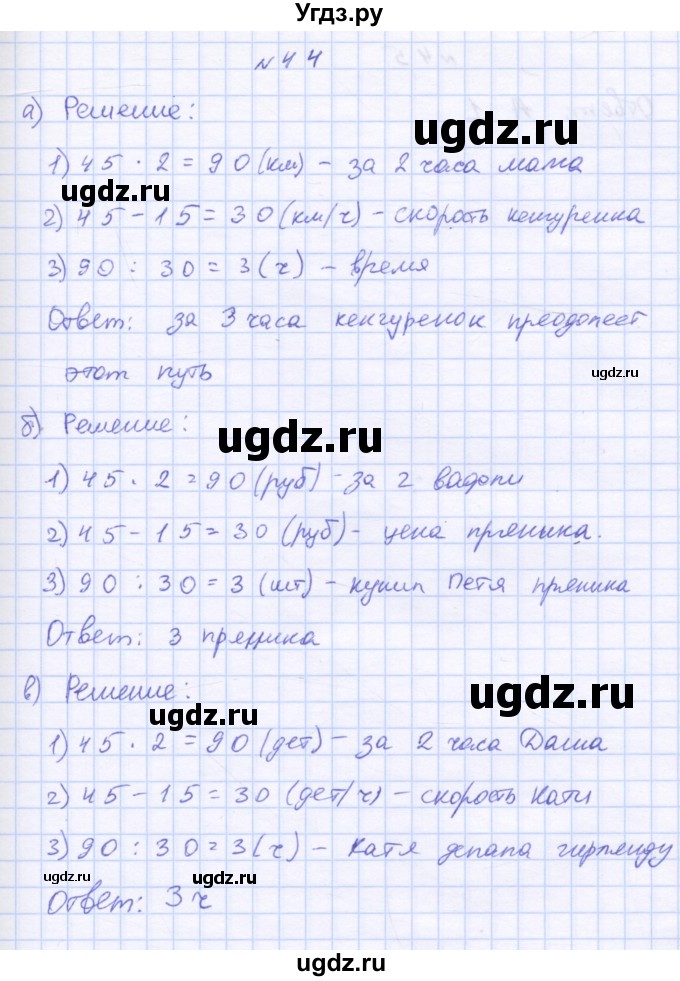 Угдз.ру
№44
а) Решение:
ugdz.ru
1) 45 · 2 = 90 (км) – за 2 часа мама
ugdz.ru
2) 45 – 15 = 30 (км/ч) – скорость кенгуренка
3) 90 : 30 = 3 (ч) – время
Ответ: за 3 часа кенгуренок преодолеет
ugdz.ru
этот путь
б) Решение:
ugdz.ru
1) 45 · 2 = 90 (руб) – за 2 вафли
2) 45 – 15 = 30 (руб) – цена пряника.
3) 90 : 30 = 3 (шт) – купил Петя пряника
Ответ: 3 пряника
в) Решение:
ugdz.ru
ugdz.ru
1) 45 · 2 = 90 (дет) – за 2 часа Даша
2) 45 – 15 = 30 (дет/ч) – скорость Кати
3) 90 : 30 = 3 (ч) – Катя делала гирлянду
ugdz.ru
ugdz.ru
Ответ: 3 ч
ugdz.ru